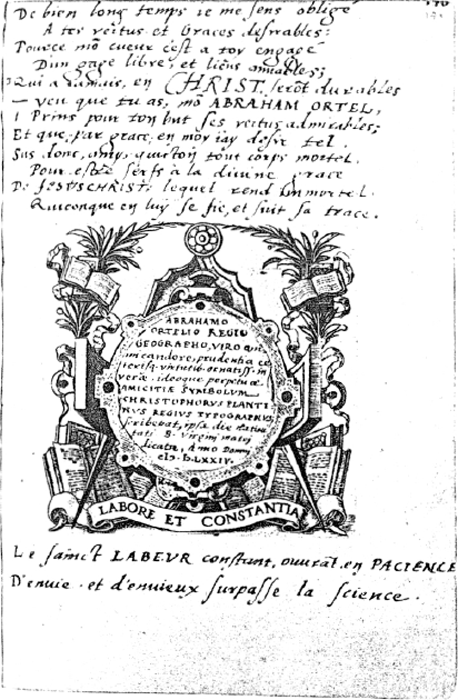 De bien long temps ie me sens obligé
A tes vertus et Graces desirables:
Pource mõ cueur c'est a toy engagé
D'un gage libre, et liens amiables;
Qui a iamais, en CHRIST, serõt durables
veu que tu as, mõ ABRAHAM ORTEL,
Prins pour ton but ses vertus admirables;
Et que, par grace, en moy i'ay desir tel.
Sus donc, amy, quictõs tout corps mortel.
Pour estre serfs à la divine grace
De JESUSCHRIST: lequel rend immortel.
Quiconque en luy se fie, et suit sa trace.
ABRAHAMO
ORTELIO REGIO
GEOGRAPHO, VIRO
candore, prudentia
virtutib. ornatiss. in
veræ ideoque perpetuæ
AMICITIÆ SYMBOLUM
CHRISTOPHORUS PLANTI
NUS REGIUS TYPOGRAPHUS,
scribebat, ipsa die
tati B. Virgini
dicata, Anno Domini
cIɔ. Iɔ. LXXIV.
LABORE ET CONSTANTIA
Le sainct LABEUR constant, ouvrãt en PACIENCE
D'envie et d'envieux surpasse la science.